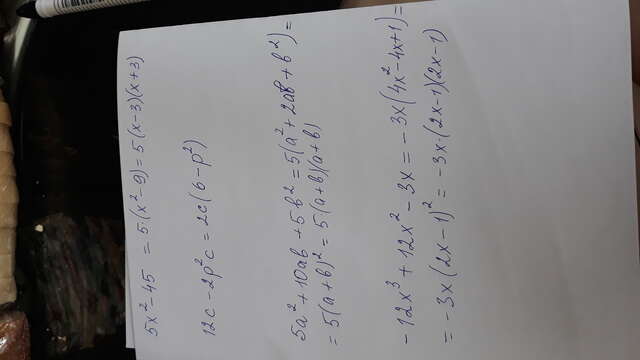 5x² - 45 = 5·(x² - 9) = 5(x - 3)(x + 3)
12c - 2p²c = 2c(6 - p²)
5a² + 10ab + 5b² = 5(a² + 2ab + b²) =
= 5(a + b)² = 5·(a + b)(a + b)
- 12x³ + 12x² - 3x = - 3x(4x² - 4x + 1) =
= - 3x(2x - 1)² = - 3x·(2x - 1)(2x - 1)